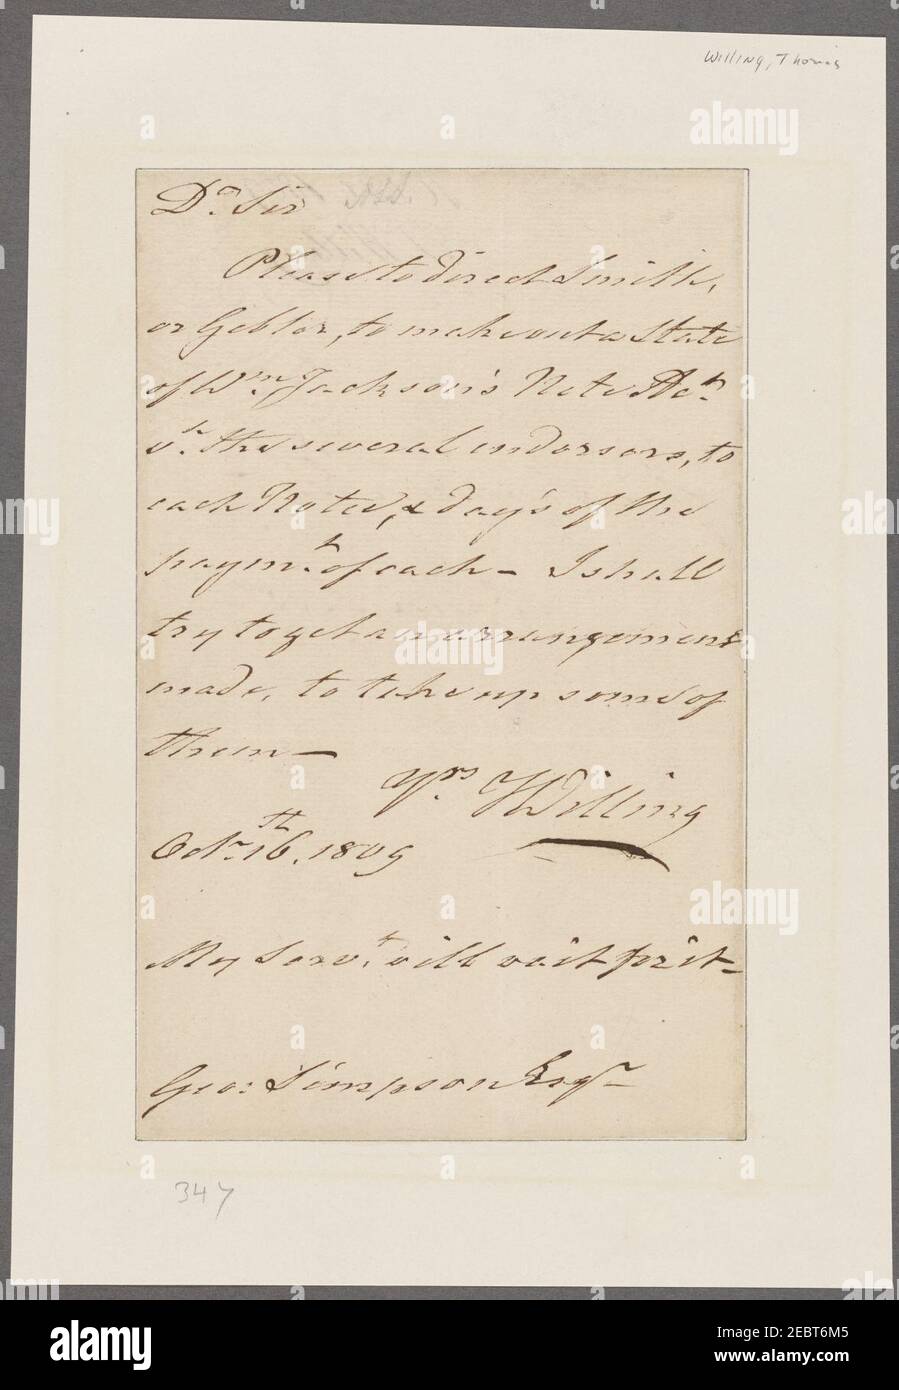 Willing, Thomas
Dr. Sir
Please to direct Smith,
or Gebler, to make out a State
of Wm. Jackson's Note
the several endorsors, to
each Note, & day's of the
paymt. of each - I shall
try to get an arrangement
made, to take up some of
them -
Yrs. TWilling
Octr. 16th, 1809
My Servt. will wait for it -
Geo: Simpson Esqr.
347
alamy
Image ID: 2EBT6M5
www.alamy.com